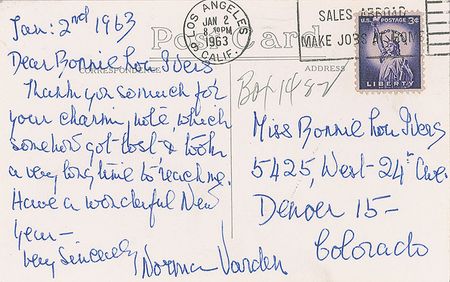 Jan: 2nd 1963
Post Card
CORRESPONDENCE
ADDRESS
LOS ANGELES
JAN 2
8 30PM
1963
CALIF.
SALES ABROAD
MAKE JOBS AT HOME
U.S. POSTAGE 3¢
LIBERTY
Box 1482
Dear Bonnie Lou Ivers
Thank you so much for
your charming note, which
somehow got lost, & took
a very long time to reach me.
Have a wonderful New
year—
Very Sincerely
Norma Varden
Miss Bonnie Lou Ivers
5425, West - 24th Ave.
Denver 15-
Colorado